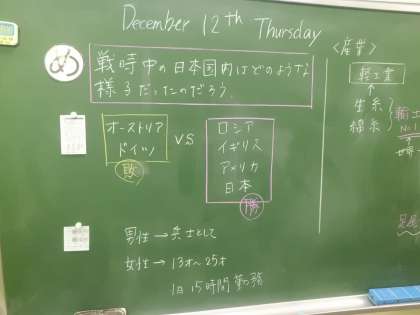 December 12th Thursday
め
戦時中の日本国内はどのような
様子だったのだろう。
オーストリア
ドイツ
敗
VS
ロシア
イギリス
アメリカ
日本
勝
男性→兵士として
女性→13才〜25才
1日15時間勤務
<産業>
軽工業
↑
生糸
綿糸
輸
No.1
世界